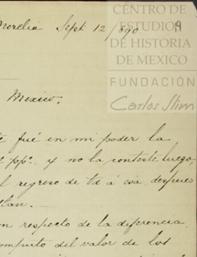 Morelia Sept 12/890
CENTRO DE
ESTUDIOS
DE HISTORIA
DE MEXICO
FUNDACIÓN
Carlos Slim
Mexico.
fué en mi poder la
y no la contesté luego
el regreso de Ud á esa despues
n respecto de la diferencia
omputo del valor de los